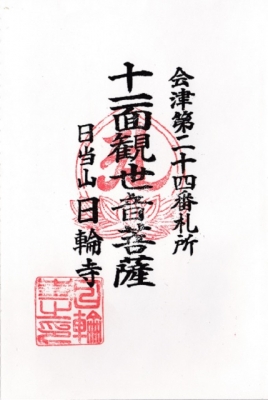 会津第二十四番札所
十一面観世音菩薩
日当山日輪寺